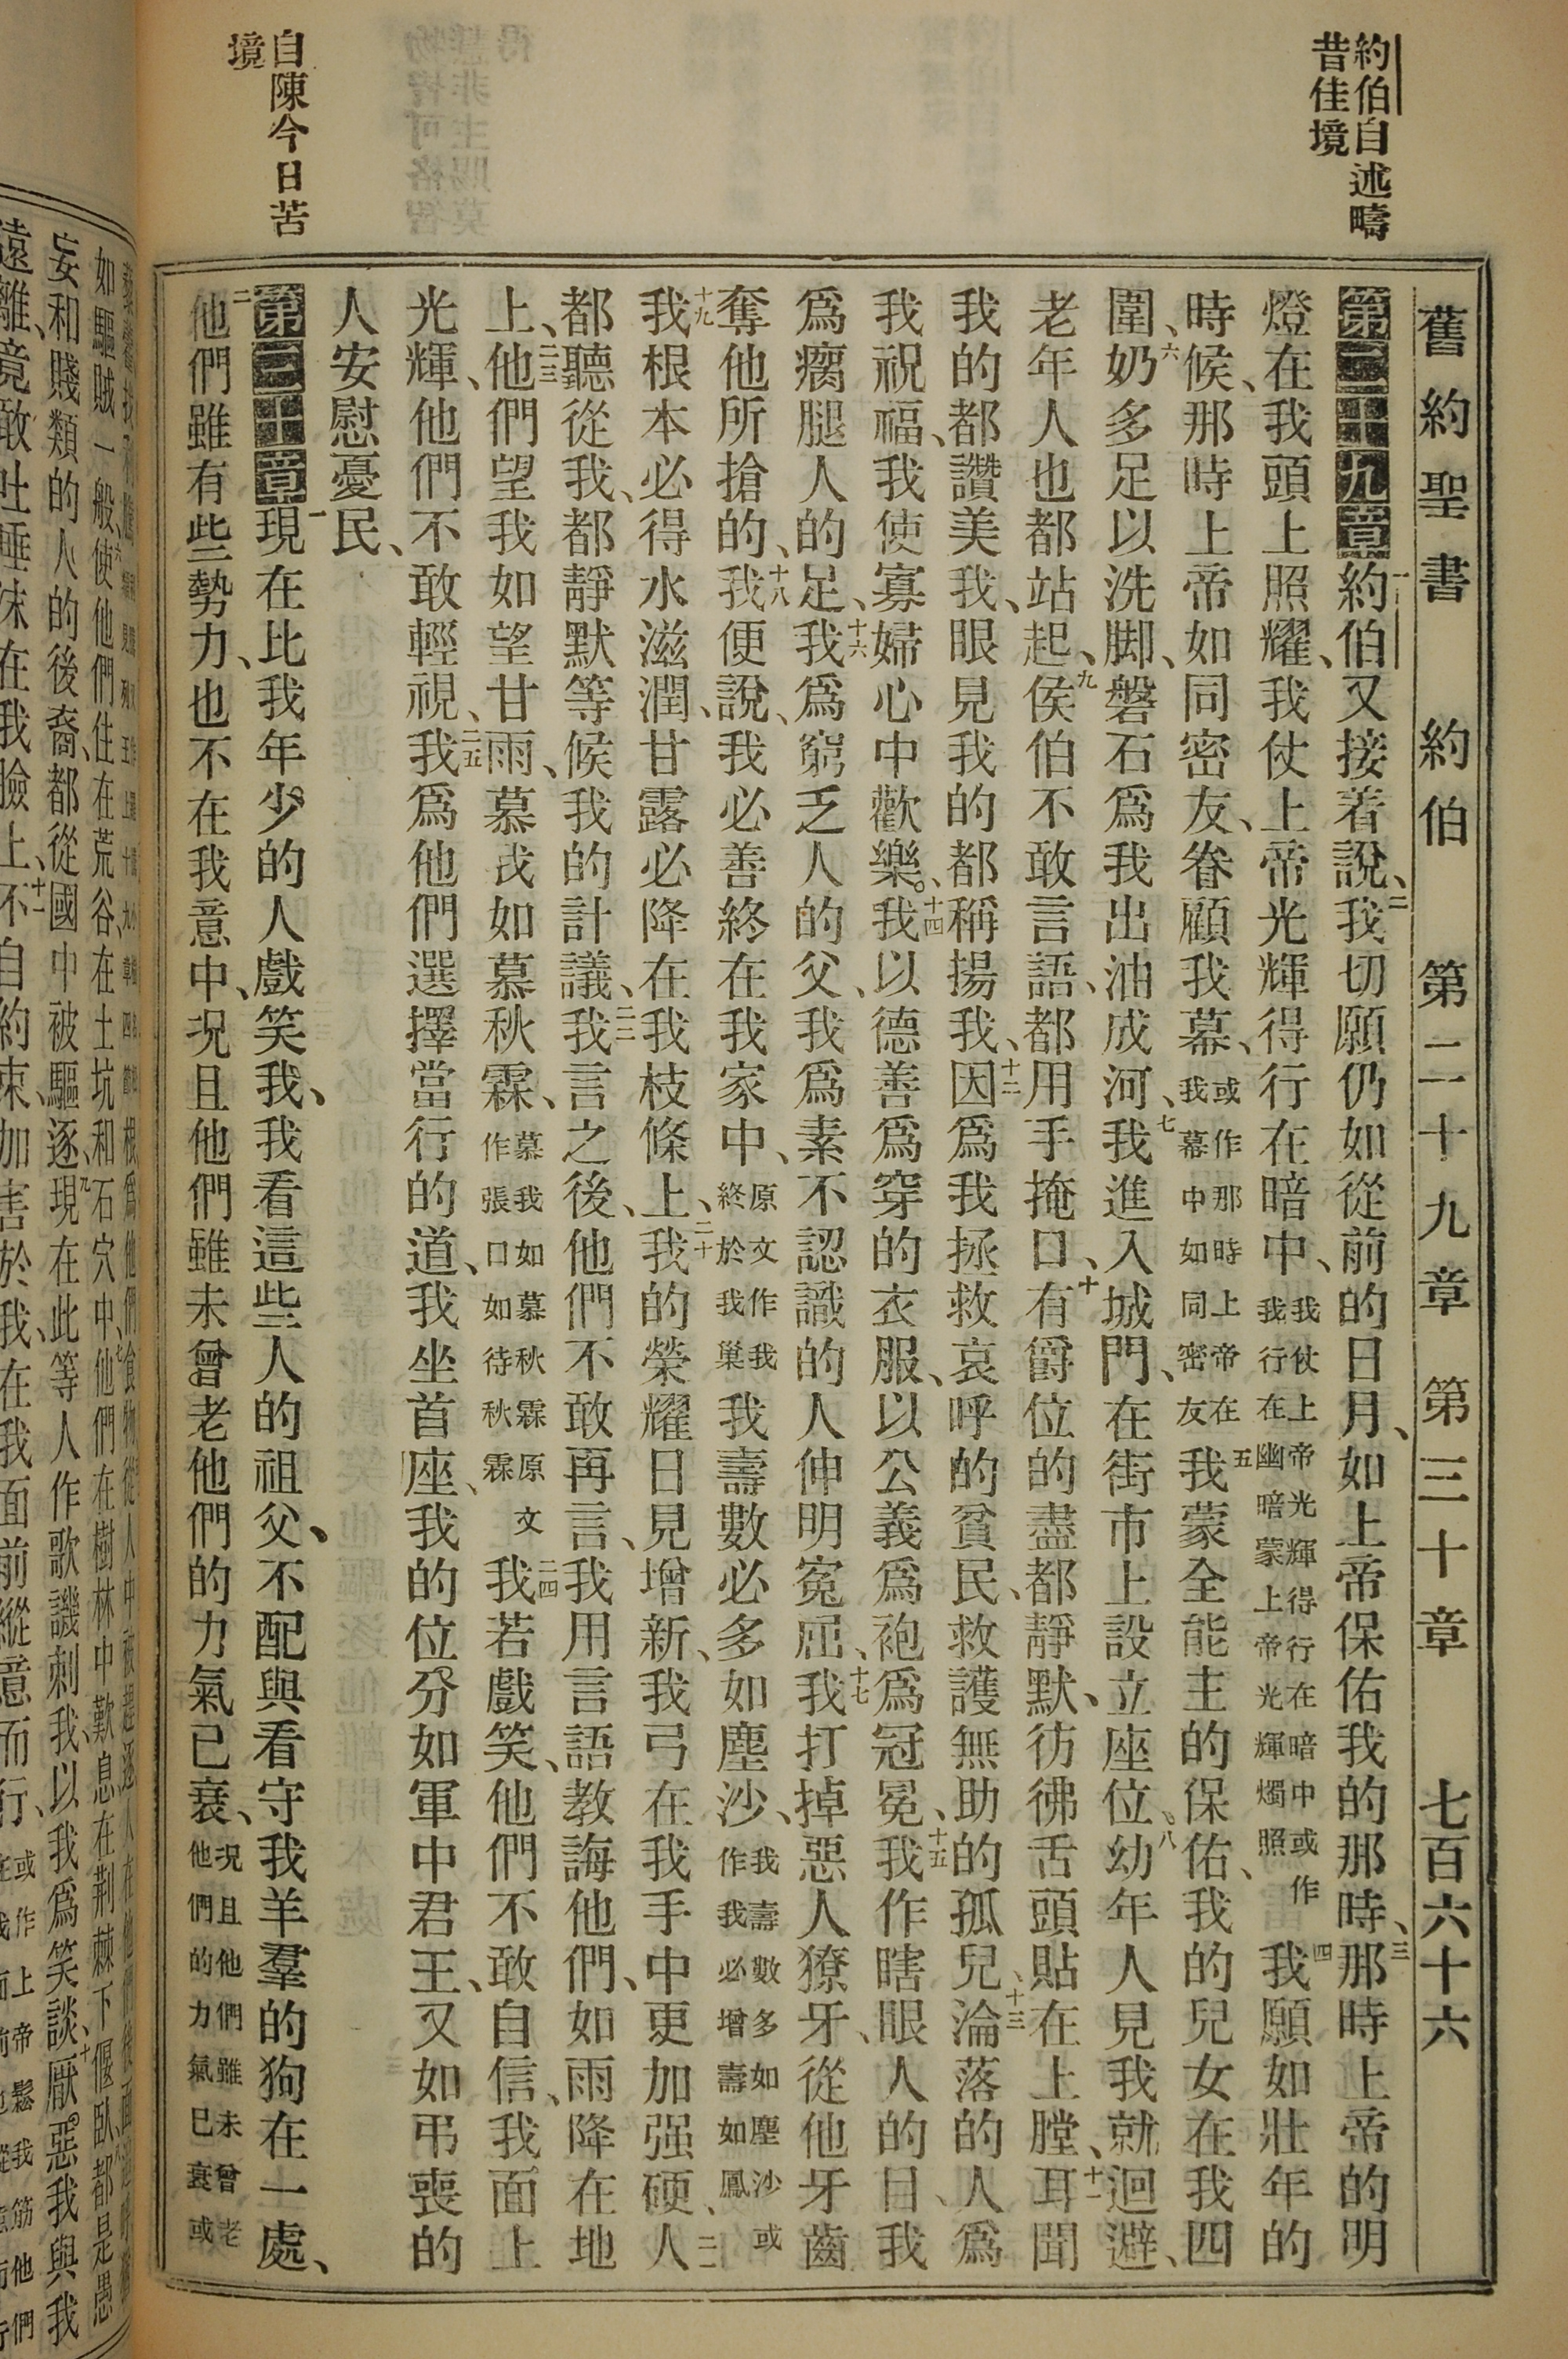 約伯自述疇
昔佳境
自陳今日苦
境
舊約聖書 約伯 第二十九章 第三十章 七百六十六
第二十九章一約伯又接着說、二我切願仍如從前的日月、如上帝保佑我的那時、三那時上帝的明
燈在我頭上照耀、我仗上帝光輝得行在暗中、我仗上帝光輝得行在暗中或作我行在幽暗蒙上帝光輝燭照四我願如壯年的
時候、那時上帝如同密友、眷顧我幕、或作那時上帝在我幕中如同密友五我蒙全能主的保佑、我的兒女在我四
圍、六奶多足以洗脚、磐石爲我出油成河、七我進入城門、在街市上設立座位、八幼年人見我就迴避、
老年人也都站起、九侯伯不敢言語、都用手掩口、十有爵位的盡都靜默、彷彿舌頭貼在上膛、十一耳聞
我的都讚美我、眼見我的都稱揚我、十二因爲我拯救哀呼的貧民、救護無助的孤兒、十三淪落的人爲
我祝福、我使寡婦心中歡樂、十四我以德善爲穿的衣服、以公義爲袍爲冠冕、十五我作瞎眼人的目、我
爲瘸腿人的足、十六我爲窮乏人的父、我爲素不認識的人伸明寃屈、十七我打掉惡人獠牙、從他牙齒
奪他所搶的、十八我便說、我必善終在我家中、原文作我終於我巢我壽數必多如塵沙、我壽數多如塵沙或作我必增壽如鳳
十九我根本必得水滋潤、甘露必降在我枝條上、二十我的榮耀日見增新、我弓在我手中更加强硬、二一人
都聽從我、都靜默等候我的計議、二二我言之後、他們不敢再言、我用言語教誨他們、如雨降在地
上、二三他們望我如望甘雨、慕我如慕秋霖、慕我如慕秋霖原文作張口如待秋霖二四我若戲笑、他們不敢自信、我面上
光輝、他們不敢輕視、二五我爲他們選擇當行的道、我坐首座、我的位分如軍中君王、又如弔喪的
人安慰憂民、
第三十章一現在比我年少的人戲笑我、我看這些人的祖父、不配與看守我羊羣的狗在一處、
二他們雖有些勢力、也不在我意中、況且他們雖未曾老他們的力氣已衰、況且他們雖未曾老他們的力氣已衰或
如驅賊一般、六使他們住在荒谷、在土坑和石穴中、七他們在樹林中歎息在荆棘下偃臥、八都是愚
妄和賤類的人的後裔、都從國中被驅逐、九現在此等人作歌譏刺我、以我爲笑談、十厭惡我與我
遠離、竟敢吐唾沫在我臉上、十一不自約束、加害於我、在我面前縱意而行、